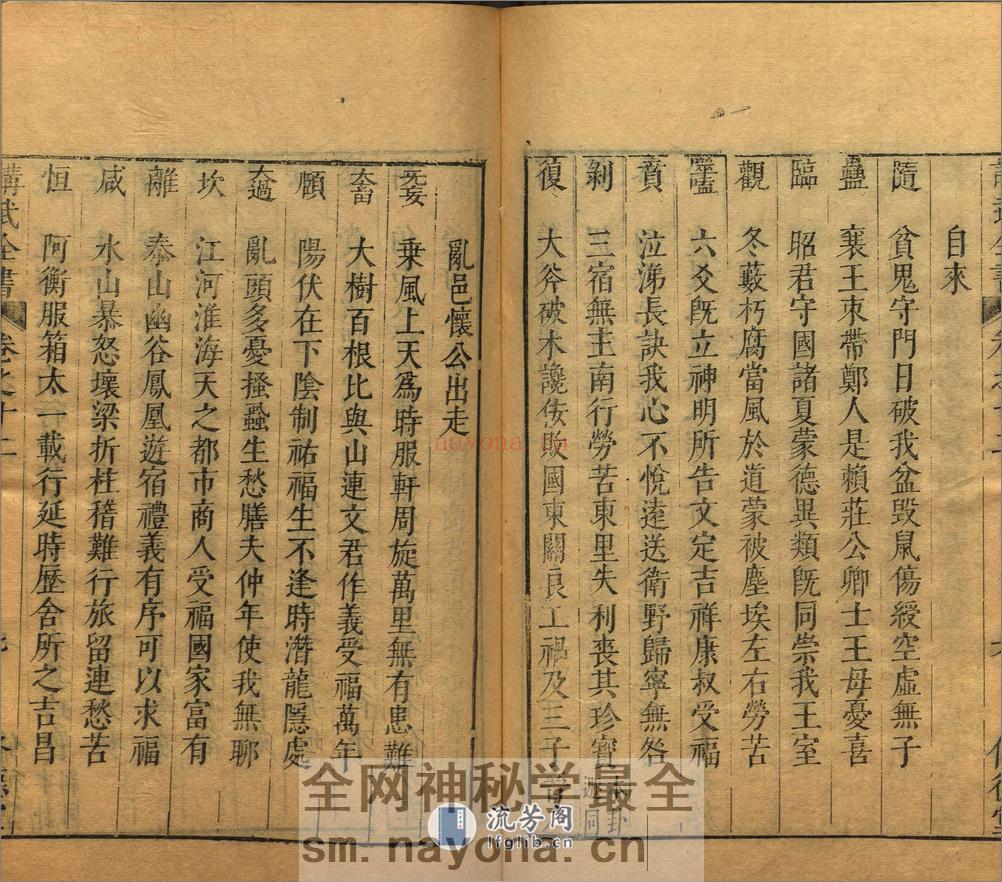 自來
隨 貧鬼守門日破我盆毀鼠傷緩空虛無子
蠱 襄王束帶鄭人是賴莊公卿士王母憂喜
臨 昭君守國諸夏蒙德異類既同崇我王室
觀 冬藪朽腐當風於道蒙被塵埃左右勞苦
噬嗑 六爻既立神明所告文定吉祥康叔受福
賁 泣涕長訣我心不悅遠送衛野歸寧無咎
剝 三宿無主南行勞苦東里失利喪其珍寶
復 大斧破木讒佞敗國東關良工禍及三子
亂邑懷公出走
无妄 乗風上天爲時服軒周旋萬里無有患難
大畜 大樹百根比與山連文君作義受福萬年
頤 陽伏在下陰制祐福生不逢時潛龍隱處
大過 亂頭多憂搔蝨生愁膳夫仲年使我無聊
坎 江河淮海天之都市商人受福國家富有
離 泰山幽谷鳳凰遊宿禮義有序可以求福
咸 水山暴怒壞梁折柱稽難行旅留連愁苦
恒 阿衡服箱太一載行延時歷舍所之吉昌
講武全書 卷之十二
nayona.cn
全网神秘学最全
流芳阁
lfglib.cn
sm.nayona.cn